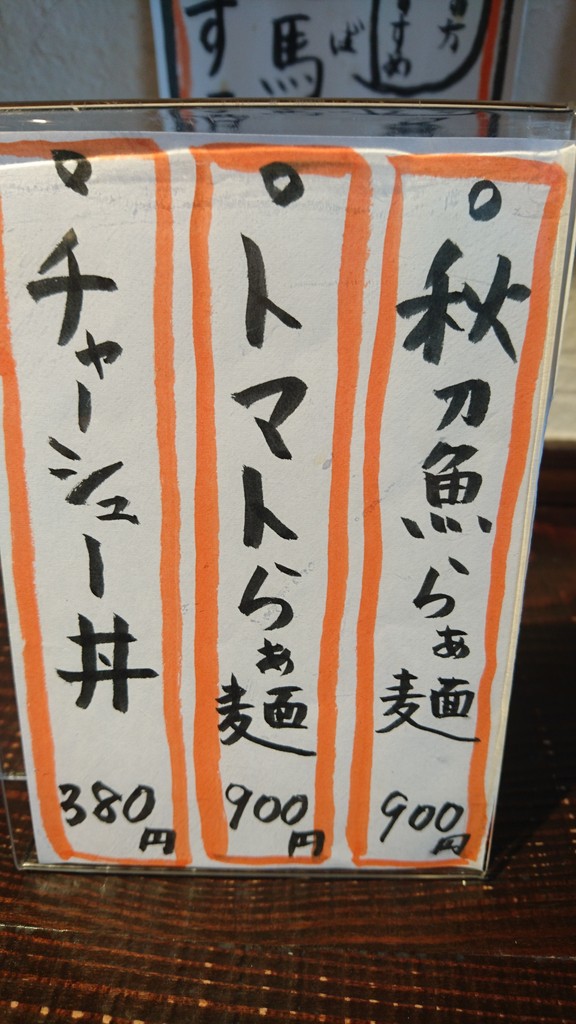 秋刀魚らぁ麺
900円
トマトらぁ麺
900円
チャーシュー丼
380円
馬
ば
す